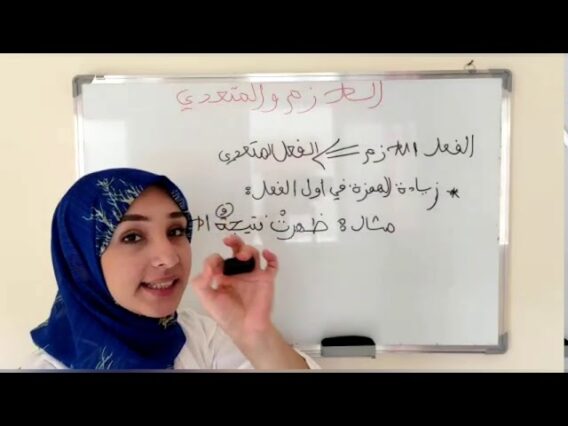 اللازم والمتعدي
الفعل اللازم ⇐ الفعل المتعدي
* زيادة الهمزة في أول الفعل:
مثال: ظهرتْ نتيجةُ